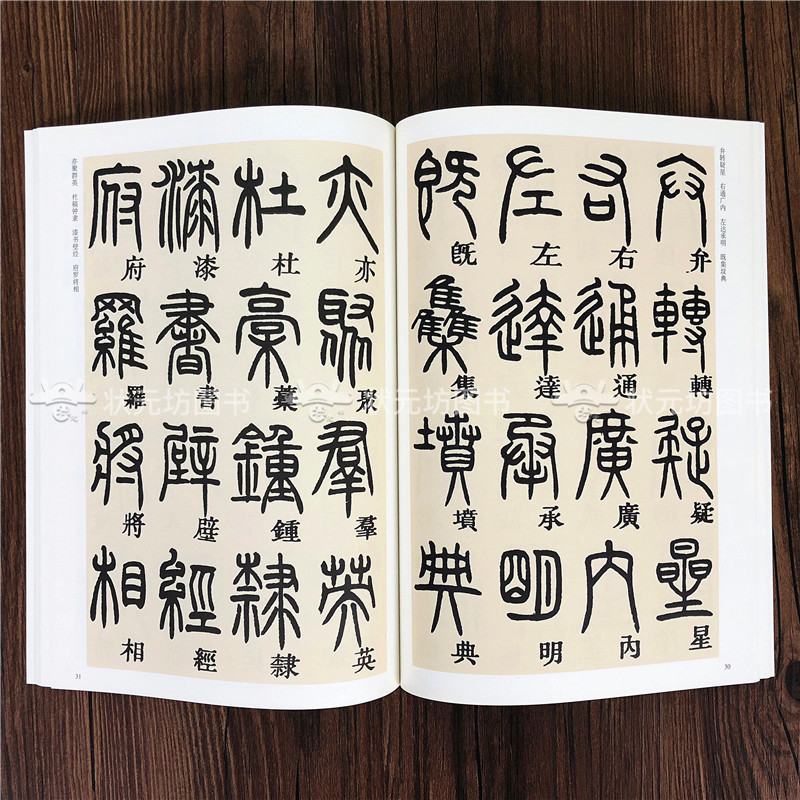 弁转疑星 右通广内 左达承明 既集坟典
弁轉疑星
右通廣內
左達承明
旣集墳典
30
亦聚羣英
杜藁鍾隸
漆書壁經
府羅將相
亦聚群英 杜稿钟隶 漆书壁经 府罗将相
31
状元坊图书
状元坊图书